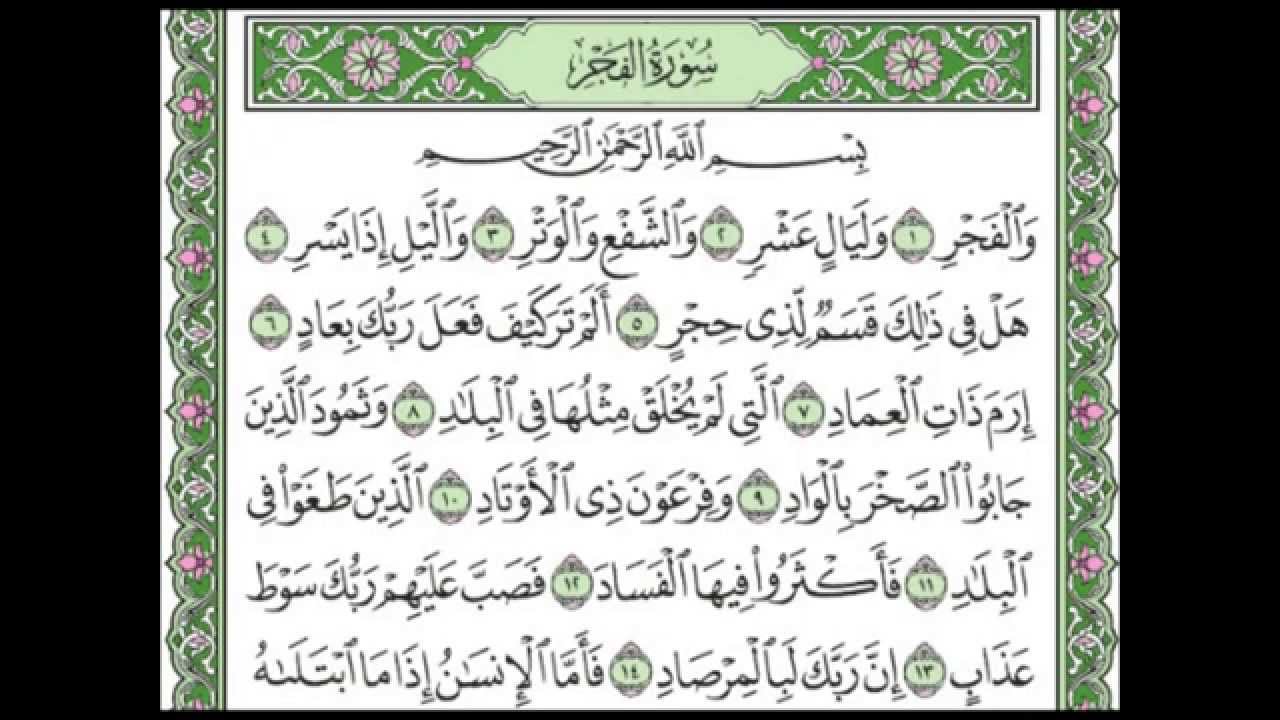 سُورَةُ الفَجْرِ
بِسْمِ ٱللَّهِ ٱلرَّحْمَٰنِ ٱلرَّحِيمِ
وَٱلْفَجْرِ ١ وَلَيَالٍ عَشْرٍ ٢ وَٱلشَّفْعِ وَٱلْوَتْرِ ٣ وَٱلَّيْلِ إِذَا يَسْرِ ٤
هَلْ فِى ذَٰلِكَ قَسَمٌ لِّذِى حِجْرٍ ٥ أَلَمْ تَرَ كَيْفَ فَعَلَ رَبُّكَ بِعَادٍ ٦
إِرَمَ ذَاتِ ٱلْعِمَادِ ٧ ٱلَّتِى لَمْ يُخْلَقْ مِثْلُهَا فِى ٱلْبِلَٰدِ ٨ وَثَمُودَ ٱلَّذِينَ
جَابُوا۟ ٱلصَّخْرَ بِٱلْوَادِ ٩ وَفِرْعَوْنَ ذِى ٱلْأَوْتَادِ ١٠ ٱلَّذِينَ طَغَوْا۟ فِى
ٱلْبِلَٰدِ ١١ فَأَكْثَرُوا۟ فِيهَا ٱلْفَسَادَ ١٢ فَصَبَّ عَلَيْهِمْ رَبُّكَ سَوْطَ
عَذَابٍ ١٣ إِنَّ رَبَّكَ لَبِٱلْمِرْصَادِ ١٤ فَأَمَّا ٱلْإِنسَٰنُ إِذَا مَا ٱبْتَلَىٰهُ